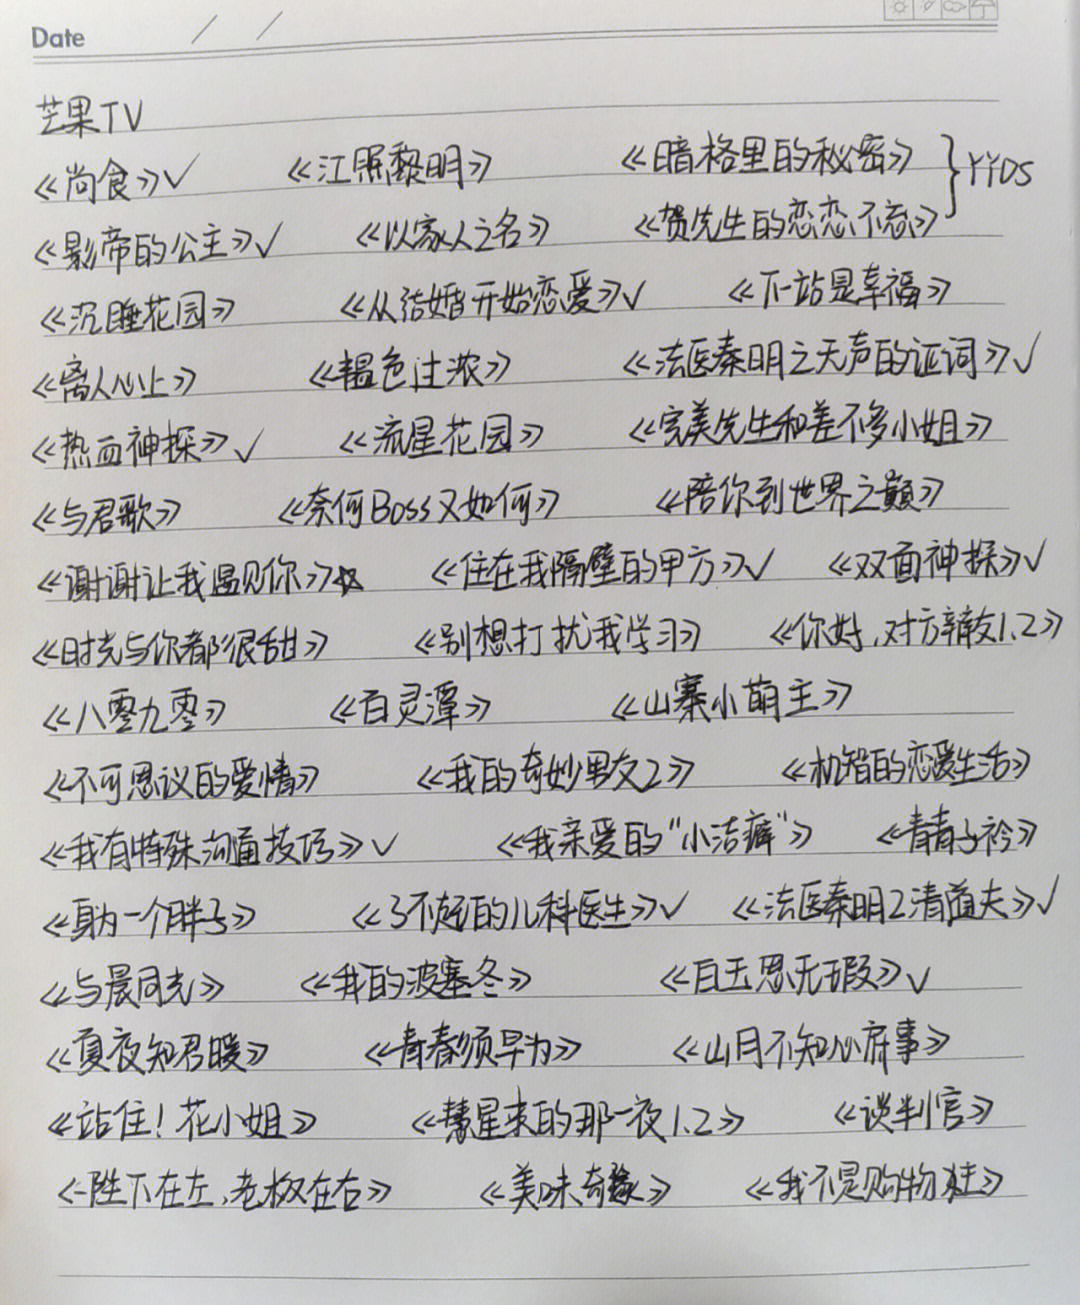 Date / /
芒果TV
《尚食》✓ 《江照黎明》 《暗格里的秘密》 } YYDS
《影帝的公主》✓ 《以家人之名》 《贺先生的恋恋不忘》
《沉睡花园》 《从结婚开始恋爱》✓ 《下一站是幸福》
《离人心上》 《韫色过浓》 《法医秦明之无声的证词》✓
《热血神探》✓ 《流星花园》 《完美先生和差不多小姐》
《与君歌》 《奈何Boss又如何》 《陪你到世界之巅》
《谢谢让我遇见你》☆ 《住在我隔壁的甲方》✓ 《双面神探》✓
《时光与你都很甜》 《别想打扰我学习》 《你好,对方辩友1.2》
《八零九零》 《百灵潭》 《山寨小萌主》
《不可思议的爱情》 《我的奇妙男友2》 《机智的恋爱生活》
《我有特殊沟通技巧》✓ 《我亲爱的“小洁癖”》 《青青子衿》
《身为一个胖子》 《了不起的儿科医生》✓ 《法医秦明2清道夫》✓
《与晨同光》 《我的波塞冬》 《白玉思无瑕》✓
《夏夜知君暖》 《青春须早为》 《山月不知心底事》
《站住!花小姐》 《彗星来的那一夜1.2》 《谈判官》
《陛下在左,老板在右》 《美味奇缘》 《我不是购物狂》